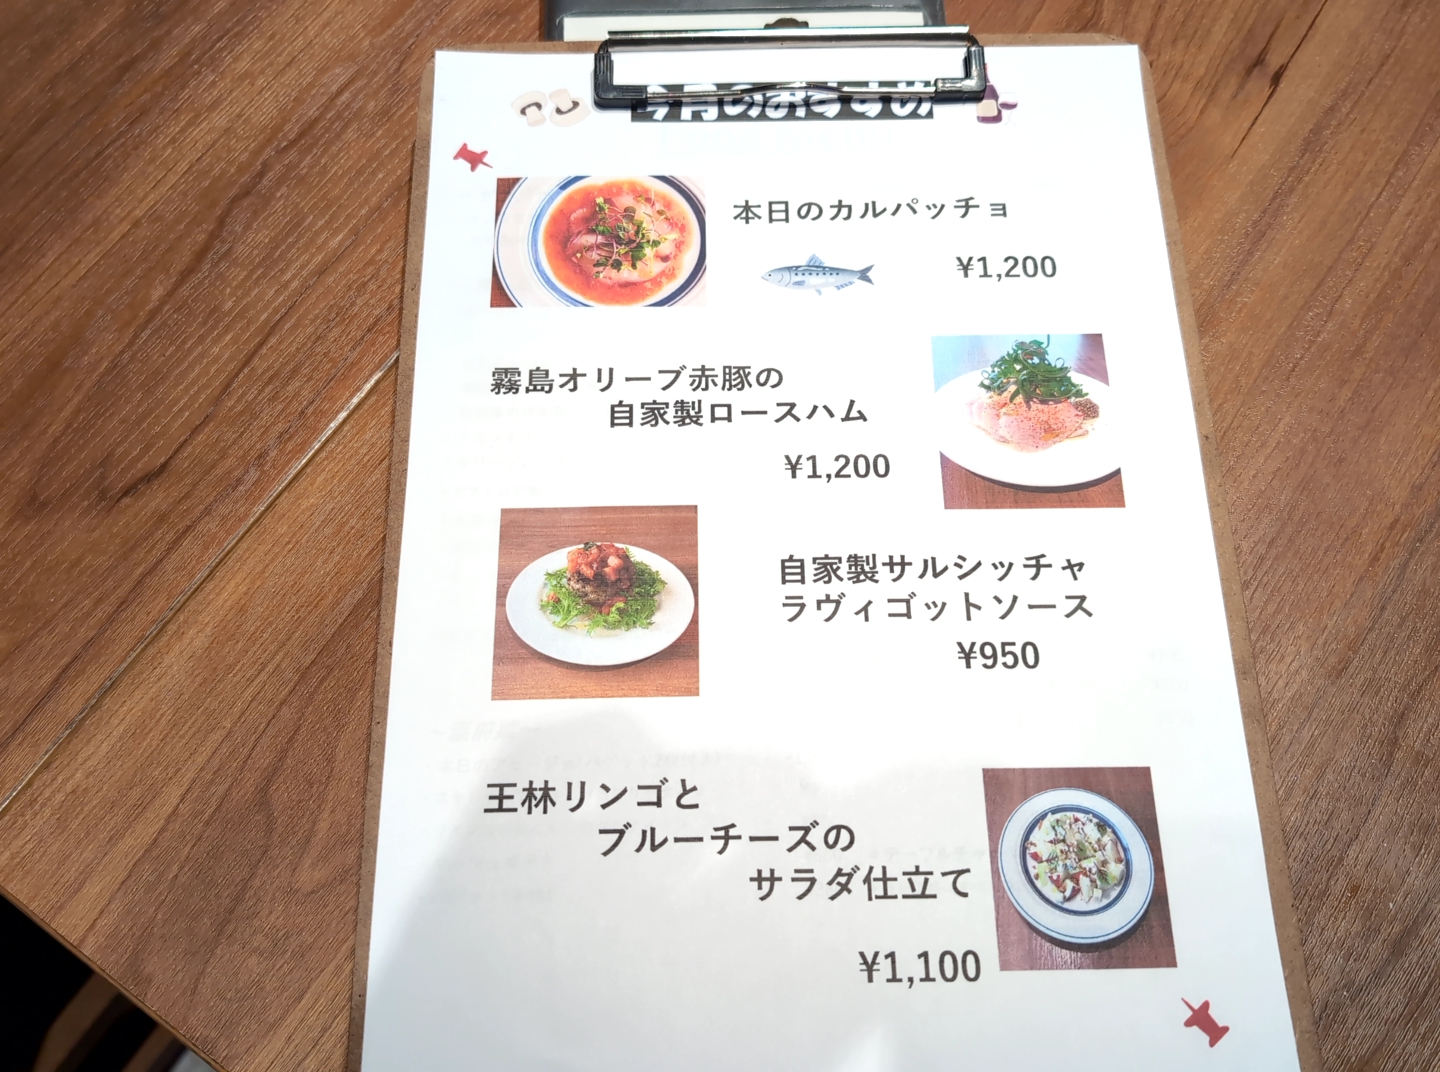 今月のおすすめ
本日のカルパッチョ
¥1,200
霧島オリーブ赤豚の
自家製ロースハム
¥1,200
自家製サルシッチャ
ラヴィゴットソース
¥950
王林リンゴと
ブルーチーズの
サラダ仕立て
¥1,100